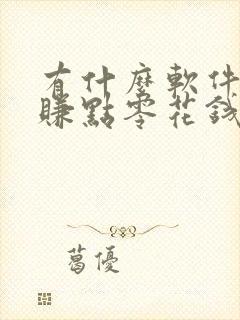 有什麼軟件
賺點零花錢
葛優